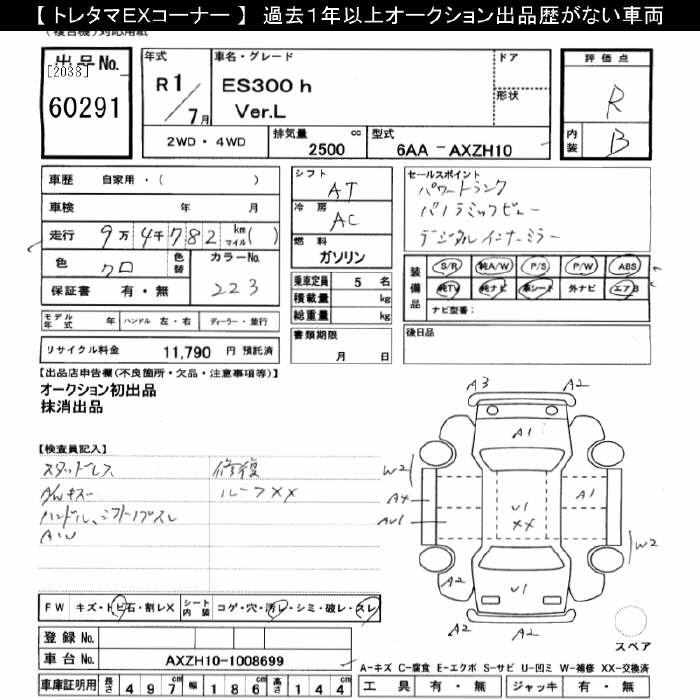 【 トレタマEXコーナー 】 過去1年以上オークション出品歴がない車両
出品No.
[2038]
60291
年式
R1/7月
車名・グレード
ES300h
Ver.L
ドア
形状
評価点
R
内装
B
2WD・4WD
排気量 2500 cc
型式 6AA-AXZH10
車歴 自家用・( )
車検 年 月
走行 9万4千782 km マイル( )
色 クロ
色替
カラーNo. 223
保証書 有・無
シフト AT
冷房 AC
燃料 ガソリン
乗車定員 5 名
積載量 kg
総重量 kg
書類期限
月 日
セールスポイント
パワートランク
パノラミックビュー
デジタルインナーミラー
装備品
S/R 純A/W P/S P/W ABS
純TV 純ナビ 革シート 外ナビ エアB
ナビ型番:
後日品
モデル年式 年 ハンドル 左・右 ディーラー・並行
リサイクル料金 11,790 円 預託済
【出品店申告欄(不良箇所・欠品・注意事項等)】
オークション初出品
抹消出品
【検査員記入】
スタッドレス
A/Wキズ
ハンドル、シフトノブスレ
修復
ルーフXX
A3
A2
A1
W2
A4
U1
XX
A1
W2
A2
U1
A2
A2
スペア
FW キズ・トビ石・割レX
シート内装 コゲ・穴・汚レ・シミ・破レ・スレ
登録No.
車台No. AXZH10-1008699
A-キズ C-腐食 E-エクボ S-サビ U-凹ミ W-補修 XX-交換済
車庫証明用 長さ 497cm 幅 186cm 高さ 144cm
工具 有・無 ジャッキ 有・無